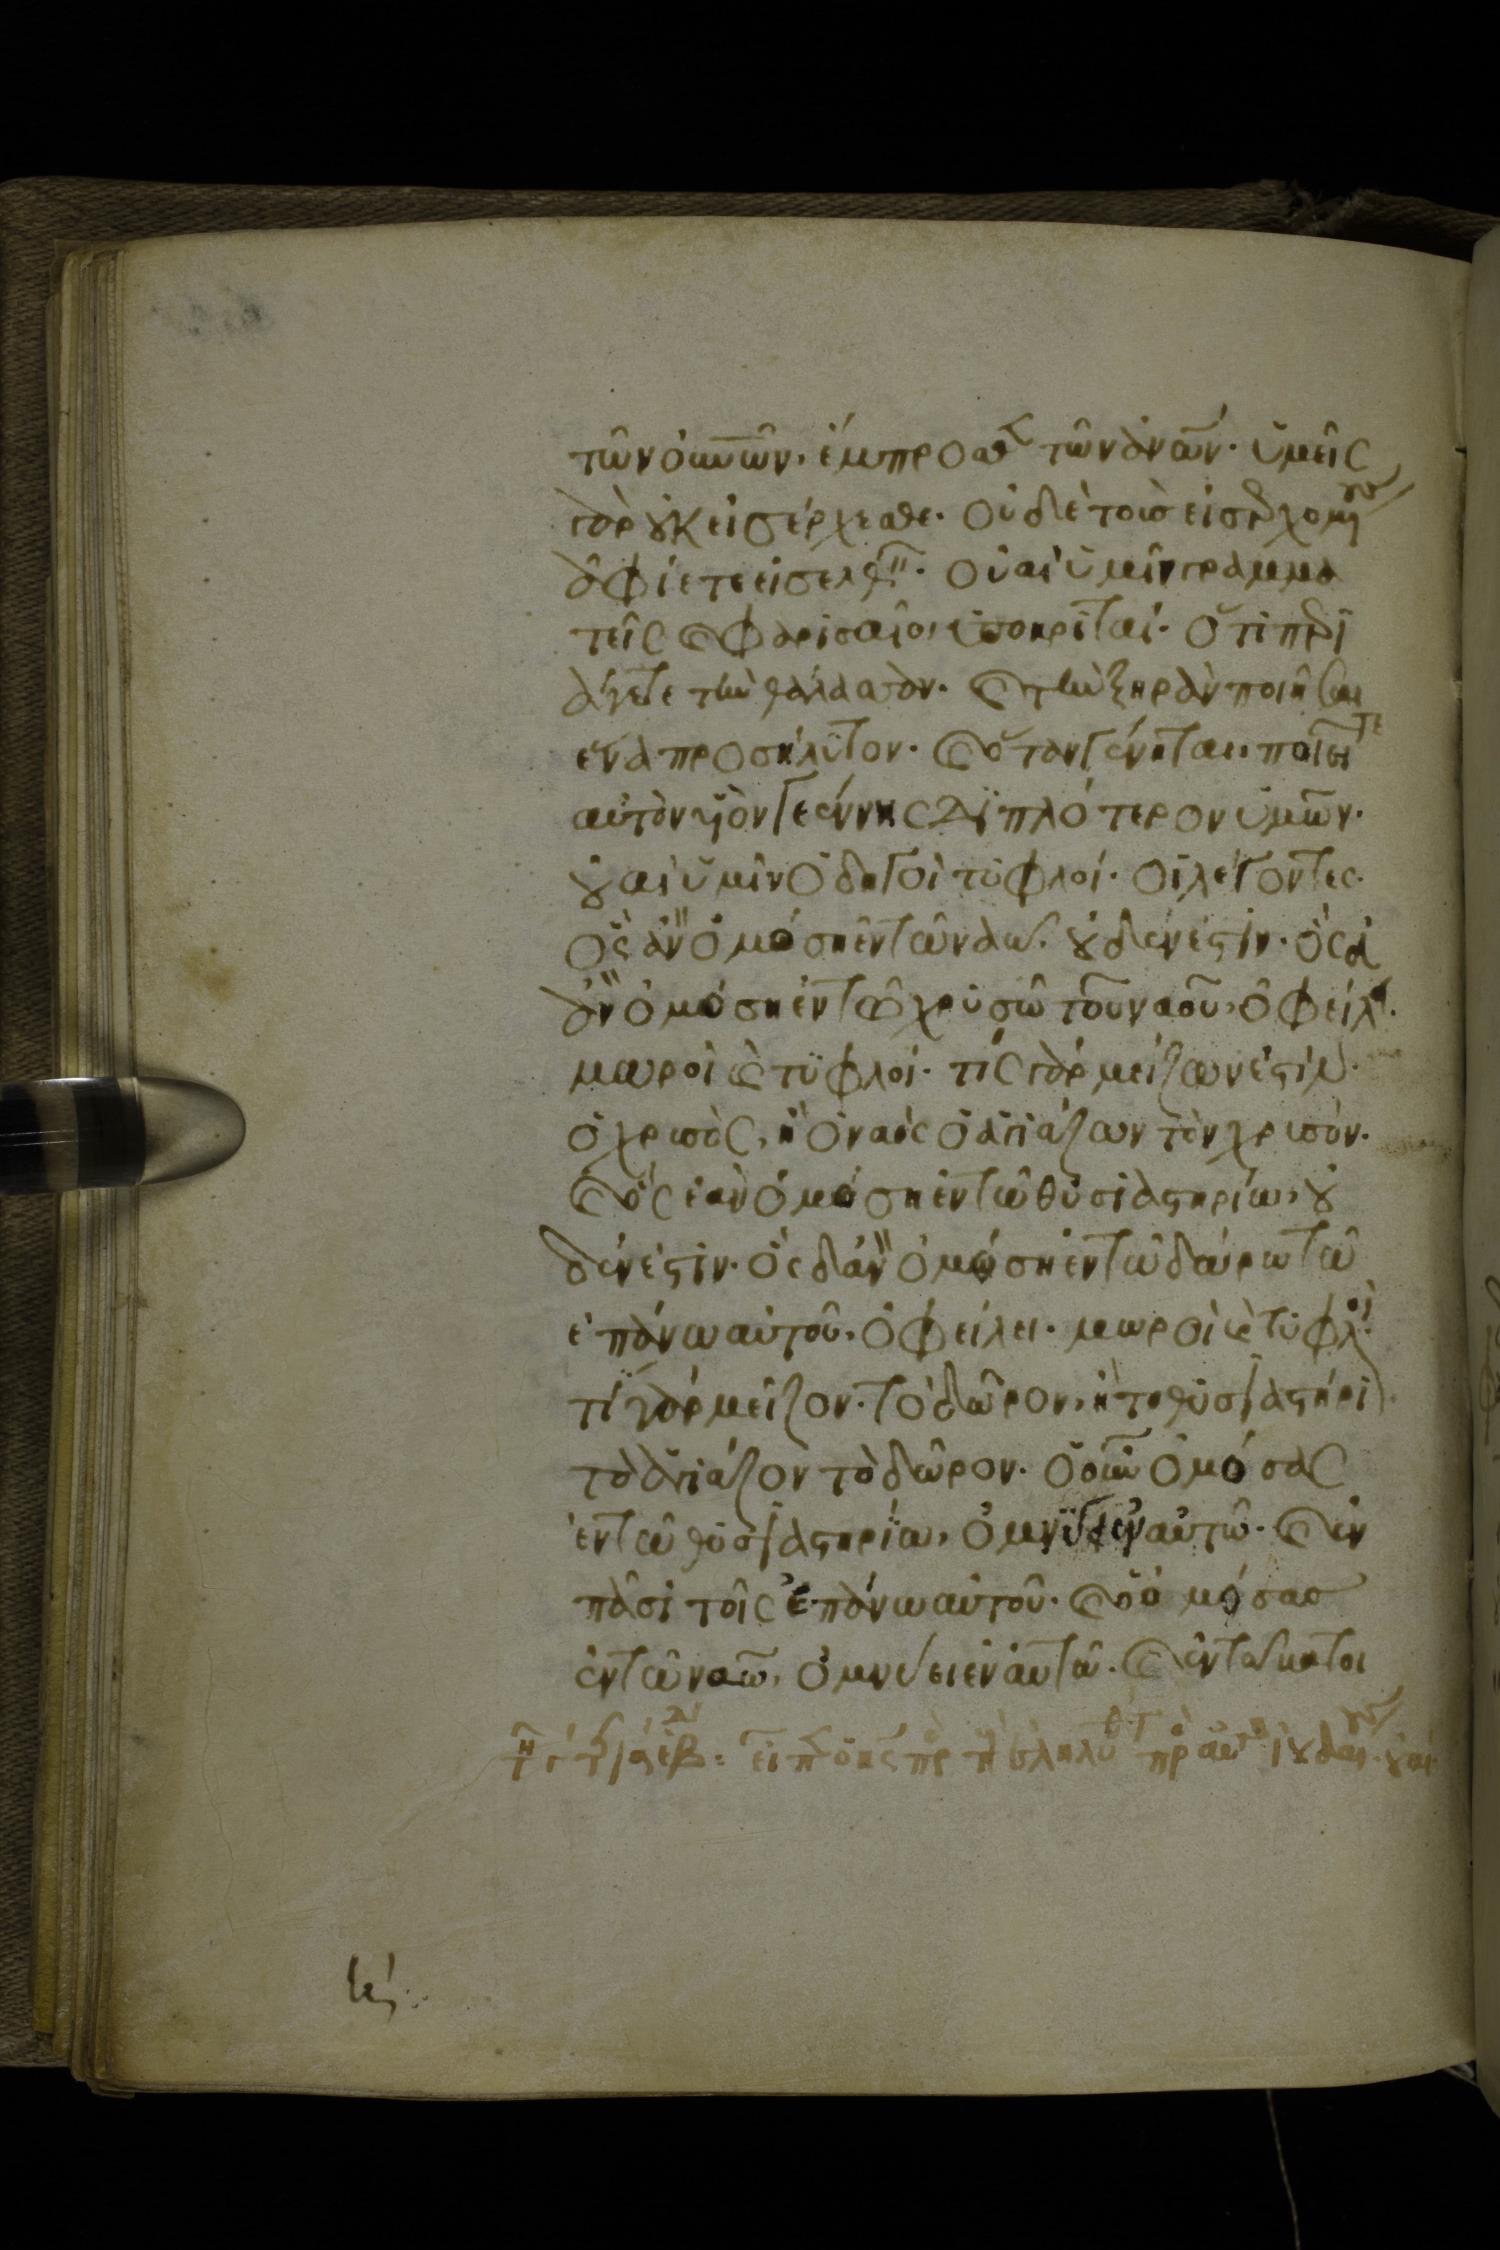 τῶν οὐνῶν, ἔμπροσθ τῶν ἀνῶν· ὑμεῖς
γὰρ οὐκ εἰσέρχεσθε· οὐδὲ τοὺσ εἰσερχομένους
ἀφίετε εἰσελθεῖν· οὐαὶ ὑμῖν γραμμα
τεῖς καὶ φαρισαῖοι ὑποκριταί· ὅτι περι
άγετε τὴν θάλασσαν· καὶ τὴν ξηρὰν ποιῆσαι
ἕνα προσήλυτον· καὶ ὅταν γένηται, ποιεῖτε
αὐτὸν υἱὸν γεέννης διπλότερον ὑμῶν·
οὐαὶ ὑμῖν ὁδηγοὶ τυφλοί· οἱ λέγοντες·
ὃς ἂν ὀμόση ἐν τῶ ναῶ, οὐδέν ἐστιν· ὃς δ
ἂν ὀμόση ἐν τῶ χρυσῶ τοῦ ναοῦ, ὀφείλει·
μωροὶ καὶ τυφλοί· τίς γὰρ μείζων ἐστίν·
ὁ χρυσὸς, ἢ ὁ ναὸς ὁ ἁγιάζων τὸν χρυσόν·
καὶ ὃς ἐὰν ὀμόση ἐν τῶ θυσιαστηρίω, οὐ
δέν ἐστιν· ὃς δ ἂν ὀμόση ἐν τῶ δώρω τῶ
ἐπάνω αὐτοῦ, ὀφείλει· μωροὶ καὶ τυφλοί·
τί γὰρ μεῖζον· τὸ δῶρον, ἢ τὸ θυσιαστήριον
τὸ ἁγιάζον τὸ δῶρον· ὁ οὖν ὀμόσας
ἐν τῶ θυσιαστηρίω, ὀμνύει ἐν αὐτῶ· καὶ ἐν
πᾶσι τοῖς ἐπάνω αὐτοῦ· καὶ ὁ ὀμόσας
ἐν τῶ ναῶ, ὀμνύει ἐν αὐτῶ· καὶ ἐν τῶ κατοι